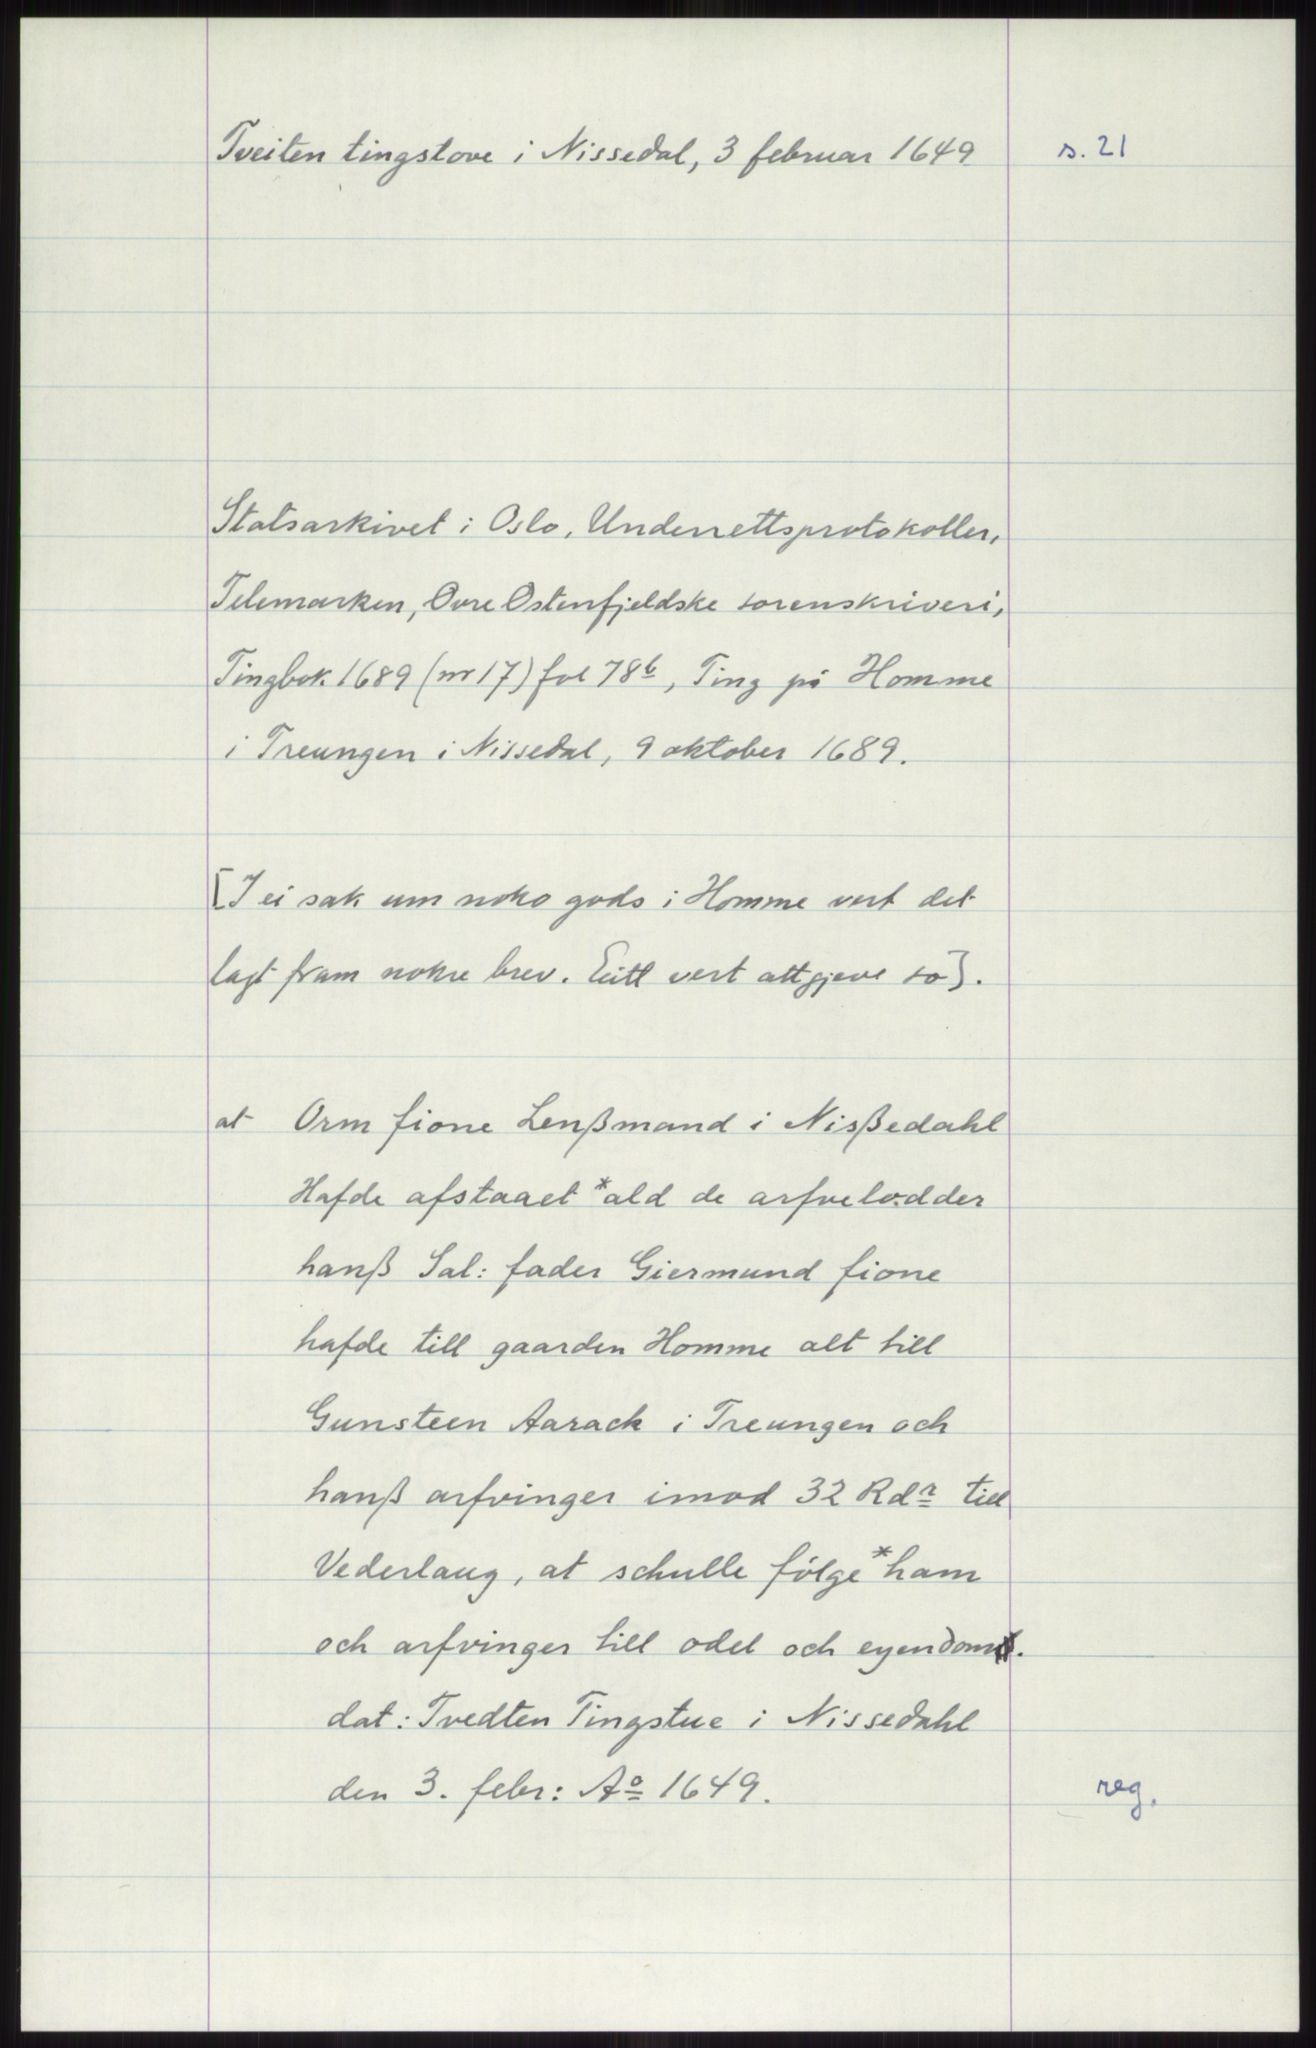 Tveiten tingstove i Nissedal, 3 februar 1649 s. 21
Statsarkivet i Oslo, Underrettsprotokoller,
Telemarken, Øvre Østenfjeldske sorenskriveri,
Tingbok 1689 (nr 17) fol 78b, Ting på Homme
i Treungen i Nissedal, 9 oktober 1689.
[I ei sak um noko gods i Homme vert det
lagt fram nokre brev. Eitt vert attgjeve so].
at Orm fione Lenßmand i Nißedahl
Hafde afstaaet *ald de arfvelodder
hanß Sal: fader Giermund fione
hafde till gaarden Homme alt till
Gunsteen Aarack i Treungen och
hanß arfvinger imod 32 Rdr till
Vederlaug, at schulle følge *ham
och arfvinger till odel och eyendom.
dat: Tvedten Tingstue i Nissedahl
den 3. febr: Ao 1649. reg.